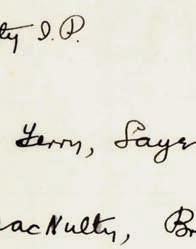 ty J.P.
Terry, Saye
acNulty, Br